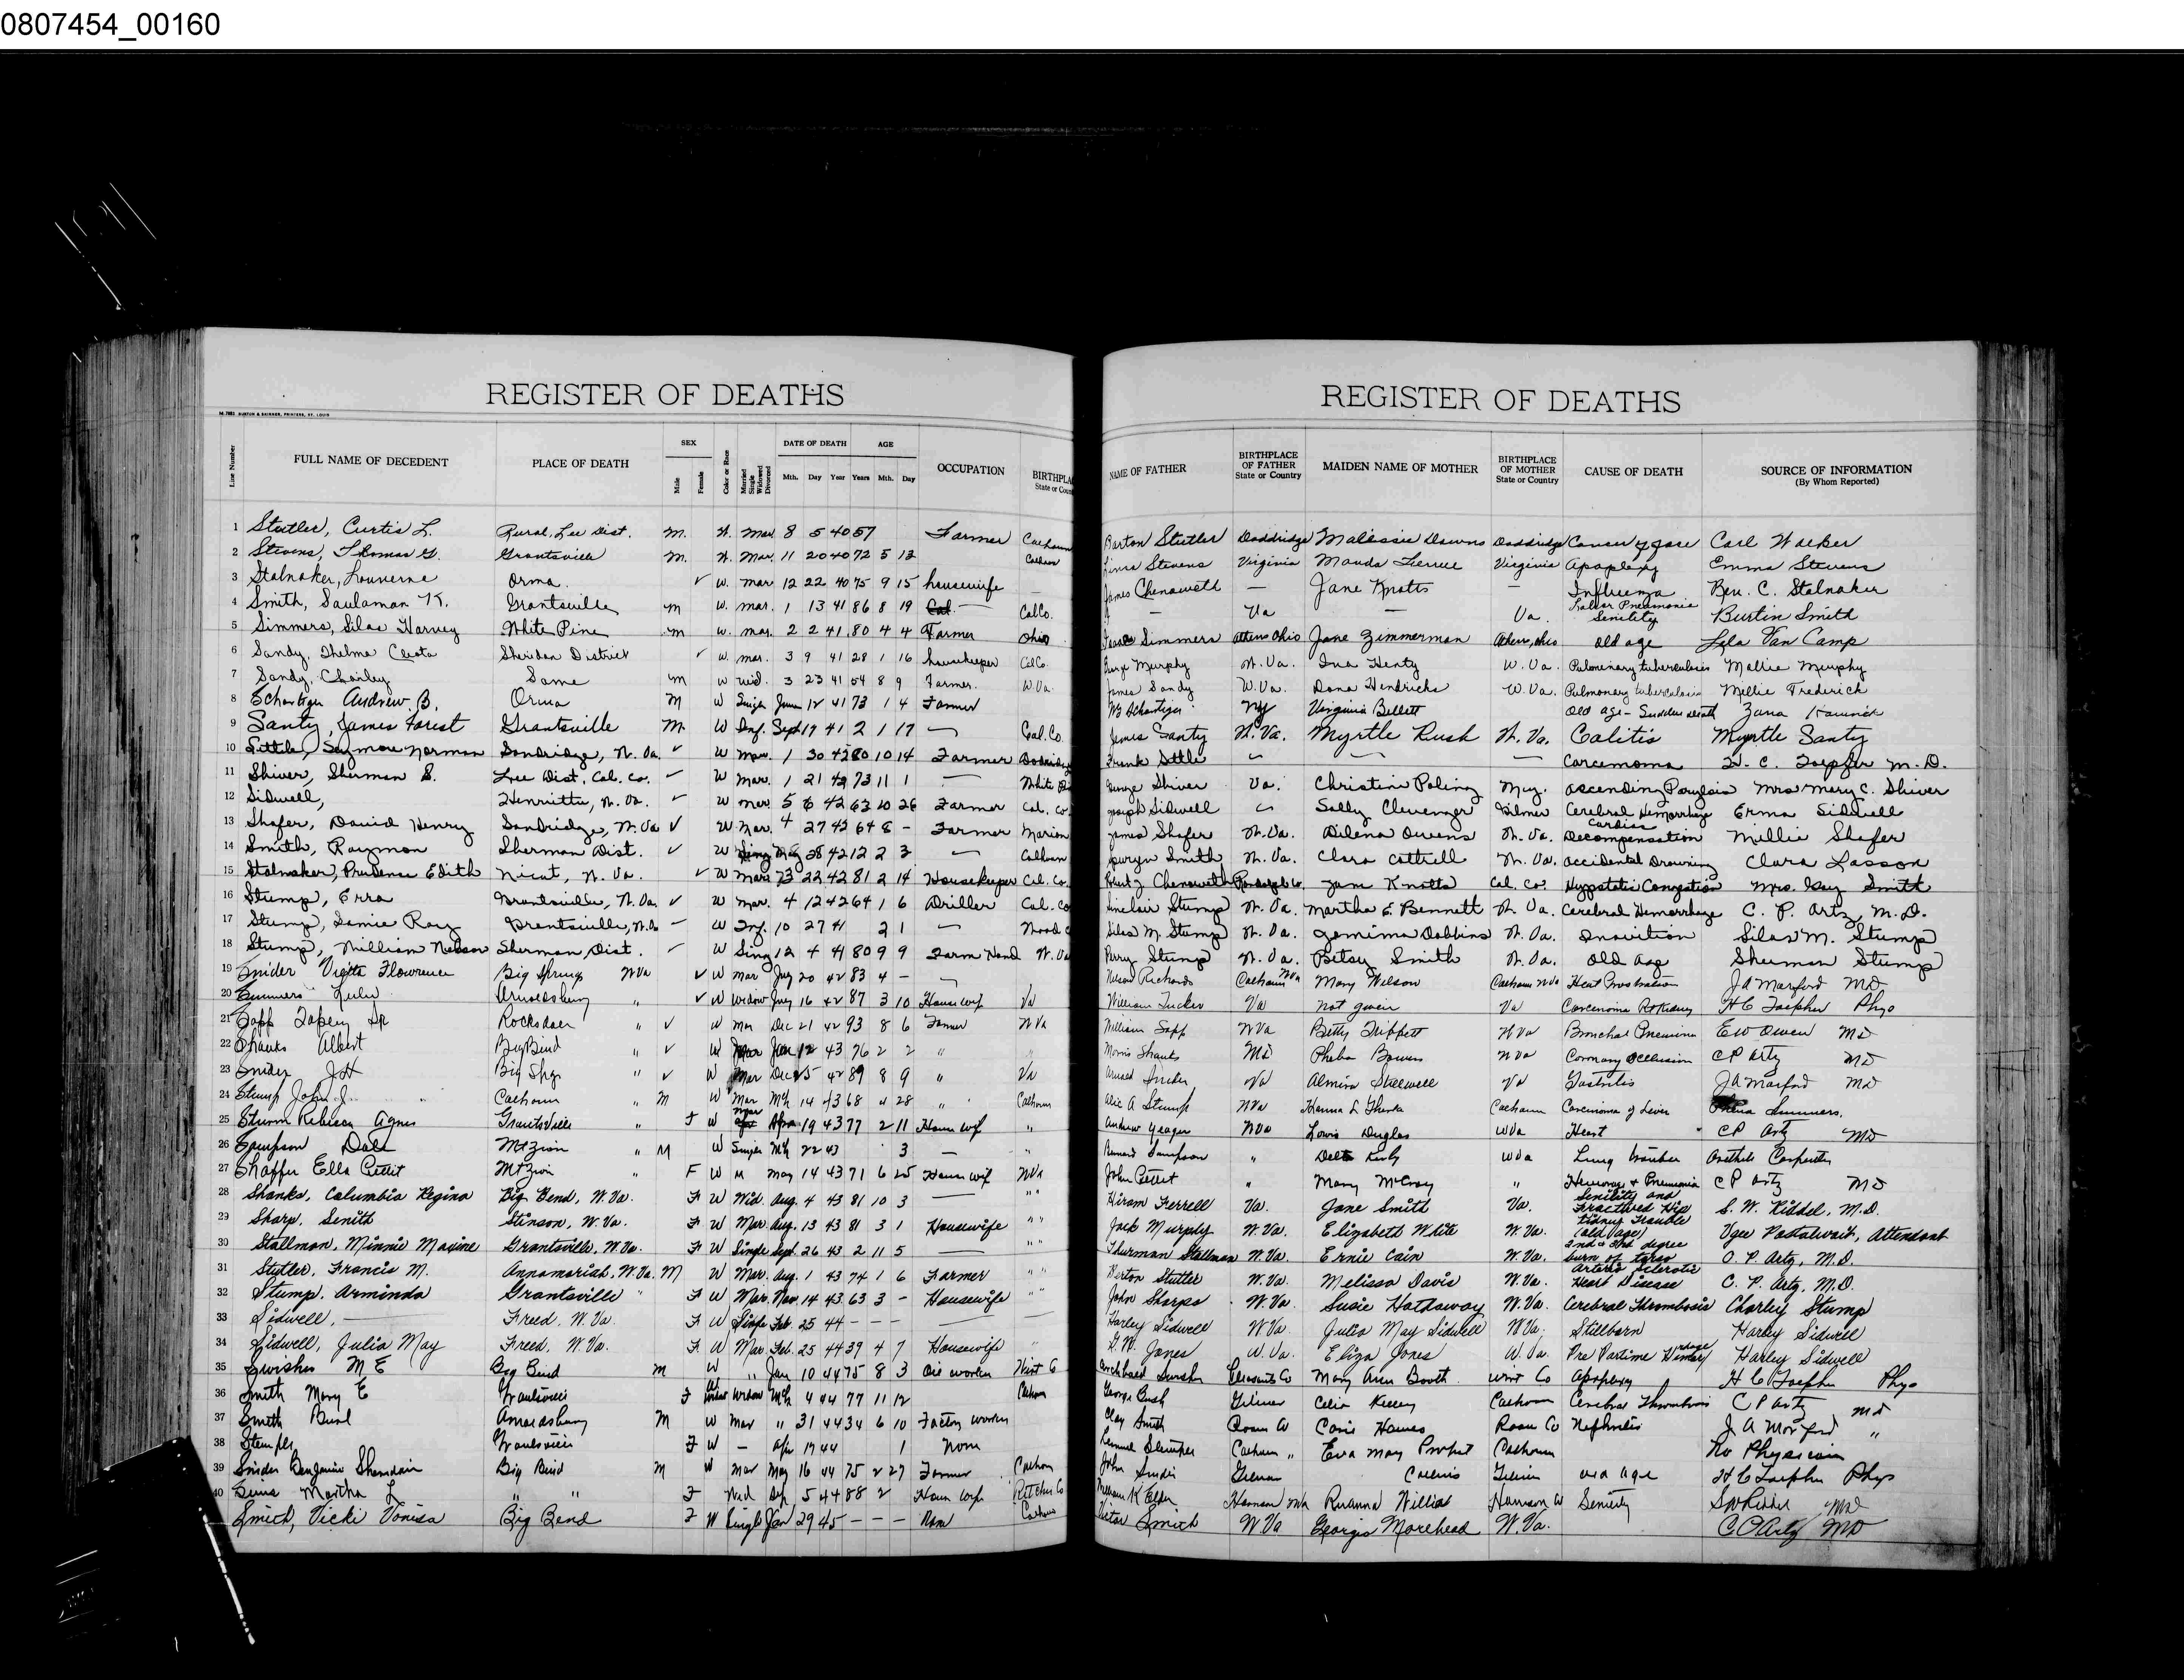 0807454_00160
REGISTER OF DEATHS
REGISTER OF DEATHS
M-7882 BURTON & SKINNER, PRINTERS, ST. LOUIS
Line Number FULL NAME OF DECEDENT PLACE OF DEATH SEX Male Female Color or Race Married Single Widowed Divorced DATE OF DEATH Mth. Day Year AGE Years Mth. Day OCCUPATION BIRTHPLA State or Coun
NAME OF FATHER BIRTHPLACE OF FATHER State or Country MAIDEN NAME OF MOTHER BIRTHPLACE OF MOTHER State or Country CAUSE OF DEATH SOURCE OF INFORMATION (By Whom Reported)
1 Stutler, Curtis L. Rural, Lee Dist. M. W. Mar. 8 5 40 57 Farmer Calhoun Barton Stutler Doddridge Malissie Downs Doddridge Cancer Carl
2 Stevens, Thomas G. Grantsville M. W. Mar. 11 20 40 72 5 13 Calhoun Stevens Virginia Virginia Apoplexy Emma Stevens
3 Stalnaker, Louverna Orma ✓ W. mar 12 22 40 75 9 15 housewife — James Chenoweth — Jane Knotts — Influenza Ben. C. Stalnaker
4 Smith, Saulaman K. Grantsville m W. mar. 1 13 41 86 8 19 — Cal Co. — Va — Va. Pneumonia Senility Burtin Smith
5 Simmers, Silas Harvey White Pine m w. mar. 2 2 41 80 4 4 Farmer Ohio Simmers Athens Ohio Jane Zimmerman Athens, Ohio old age Lyla Van Camp
6 Sandy, Thelma Sheridan District ✓ w. mar. 3 9 41 28 1 16 housekeeper Cal Co. Murphy W. Va. Ina Henty W. Va. Pulmonary tuberculosis Mollie Murphy
7 Sandy, Charley Same m w wid. 3 23 41 54 8 9 Farmer. W. Va. James Sandy W. Va. Dona Hendricks W. Va. Pulmonary tuberculosis Mellie Frederick
8 Andrew B. Orma M W June 12 41 73 1 4 Farmer Virginia Bellett old age - Sudden death Zana
9 Santy, James Forest Grantsville M. W Inf. Sept 19 41 2 1 17 — Cal. Co. James Santy W. Va. Myrtle Rush W. Va. Colitis Myrtle Santy
10 Seymore Norman Sandridge, W. Va. ✓ W Mar. 1 30 42 80 10 14 Farmer Frank — — — Carcemoma H. C. Toepfer M. D.
11 Shiver, Sherman S. Lee Dist. Cal. Co. ✓ W Mar. 1 21 42 73 11 1 — White George Shiver Va. Christina Poling Ascending Paryleis Mrs Mary C. Shiver
12 Sidwell, Henrietta, W. Va. ✓ W mar. 5 6 42 63 10 26 Farmer Cal. Co. Joseph Sidwell Sally Clevenger Gilmer Cerebral Hemorrhage Erma Sidwell
13 Shafer, David Henry Sandridge, W. Va ✓ W Mar. 4 27 42 64 8 - Farmer Marion James Shafer W. Va. Dilena Owens W. Va. Cardiac Decompensation Millie Shafer
14 Smith, Raymon Sherman Dist. ✓ W Sing May 28 42 12 2 3 — Calhoun Smith W. Va. Clara Cottrell W. Va. Accidental Drowning Clara Lasson
15 Stalnaker, Prudence Edith Nicut, W. Va. ✓ W Mar 3 22 42 81 2 14 Housekeeper Cal. Co. Robert J. Chenoweth Randolph Co. Jane Knotts Cal. Co. Hypstatic Congestion Mrs. Smith
16 Stump, Erra Grantsville, W. Va. ✓ W Mar. 4 12 42 64 1 6 Driller Cal. Co Sinclair Stump W. Va. Martha E. Bennett W. Va. Cerebral Hemorrhage C. P. Artz, M. D.
17 Stump, Ray Grantsville, W. Va ✓ W Inf. 10 27 41 2 1 — Wood C Silas M. Stump W. Va. Jemima Dobbins W. Va. Inanition Silas M. Stump
18 Stump, William Nelson Sherman Dist. ✓ W Sing 12 4 41 80 9 9 Farm Hand W. Va Perry Stump W. Va. Betsy Smith W. Va. Old Age Sherman Stump
19 Snider Flowrence Big Springs W Va ✓ W Mar 20 42 83 4 - Richards Calhoun W Va Mary Wilson Calhoun W Va Heat Prostration J A Morford MD
20 Summers Lulu Arnoldsburg " ✓ W Widow 16 42 87 3 10 House wif Va William Tucker Va not given Va Carcinoma Rt Kidney H C Toepher Phys
21 Sapp Sr Rocksdale " ✓ W Mar Dec 21 42 93 8 6 Farmer W Va William Sapp W Va Betty Tribbett W Va Bronchal Pneumina E W Owen MD
22 Shanks Albert Big Bend " ✓ W Mar Jan 12 43 76 2 2 " " Morris Shanks MD Pheba Bowers W Va Coronary Occlusion C P Artz MD
23 Snider J H Big Spgs " ✓ W Mar Dec 25 42 89 8 9 " Va Snider Va Almira Va Gastritis J A Morford MD
24 Stump John J. Calhoun " M W Mar Mch 14 43 68 4 28 " Calhoun Stump W Va Hanna L Calhoun Carcinoma of Liver Summers.
25 Sturm Rebecca Agnes Grantsville " F W Mar Apr 19 43 77 2 11 House wif " Andrew Yeager W Va Lowis Duglas W Va Heart C P Artz MD
26 Sampson Dale Mt Zion " M W Single Mch 22 43 3 — " Sampson " W Va Lung trouble Carpenter
27 Shaffer Ella Pettit Mt Zion F W M May 14 43 71 6 25 House wif W Va John Pettit " Mary McCroy " & Pneumonia C P Artz MD
28 Shanks, Columbia Regina Big Bend, W. Va. F W Wid. Aug. 4 43 81 10 3 — " " Hiram Ferrell Va. Jane Smith Va. Senility and Fractured Hip S. W. Riddel, M.D.
29 Sharp, Senith Stinson, W. Va. F W Mar. Aug. 13 43 81 3 1 Housewife " " Jack Murphy W. Va. Elizabeth White W. Va. Kidney Trouble (old age) Vgee Postalwait, Attendant
30 Stallman, Minnie Maxine Grantsville, W. Va. F W Single Sept. 26 43 2 11 5 — " " Thurman Stallman W. Va. Ernie Cain W. Va. 2nd & 3rd degree burn of torso C. P. Artz, M.D.
31 Stutler, Francis M. Annamoriah, W. Va. M W Mar. Aug. 1 43 74 1 6 Farmer " " Stutler W. Va. Melissa Davis W. Va. Arterio Sclerotic Heart Disease C. P. Artz, M.D.
32 Stump, Arminda Grantsville " F W Mar. Nov. 14 43 63 3 - Housewife " " John Sharps W. Va. Susie Hathaway W. Va. Cerebral Thrombosis Charley Stump
33 Sidwell, — Freed, W. Va. F W Single Feb. 25 44 - - - — — Harley Sidwell W. Va. Julia May Sidwell W. Va. Stillborn Harley Sidwell
34 Sidwell, Julia May Freed, W. Va. F W Mar. Feb. 25 44 39 4 7 Housewife " Jones W. Va. Eliza Jones W. Va. Harley Sidwell
35 Swisher M E Big Bend M W " Jan 10 44 75 8 3 Oil worker Wirt Co Archibald Swisher Pleasants Co Mary Ann Booth Wirt Co Apoplexy H C Toepher Phys
36 Smith Mary E Grantsville F W Widow Mch 4 44 77 11 12 Calhoun George Bush Gilmer Celia Kelley Calhoun Cerebral Thrombosis C P Artz MD
37 Smith Burl Arnoldsburg M W Mar " 31 44 34 6 10 Factory worker Clay Smith Roane Co Roane Co Nephritis J A Morford "
38 Grantsville F W — Apr 19 44 1 None Calhoun " Eva May Calhoun No Physician
39 Snider Benjamin Sheridan Big Bend M W Mar May 16 44 75 2 27 Farmer Calhoun John Snider Gilmer Collins Gilmer old age H C Toepher Phys
40 Martha L " " F Wid Sep 5 44 88 2 House wife Ritchie Co William K Harrison Ruanna Harrison Co Senility MD
Smith, Vicki Vonisa Big Bend F W Single Jan 29 45 - - - None Calhoun Victor Smith W Va Georgia Morehead W. Va. C P Artz MD